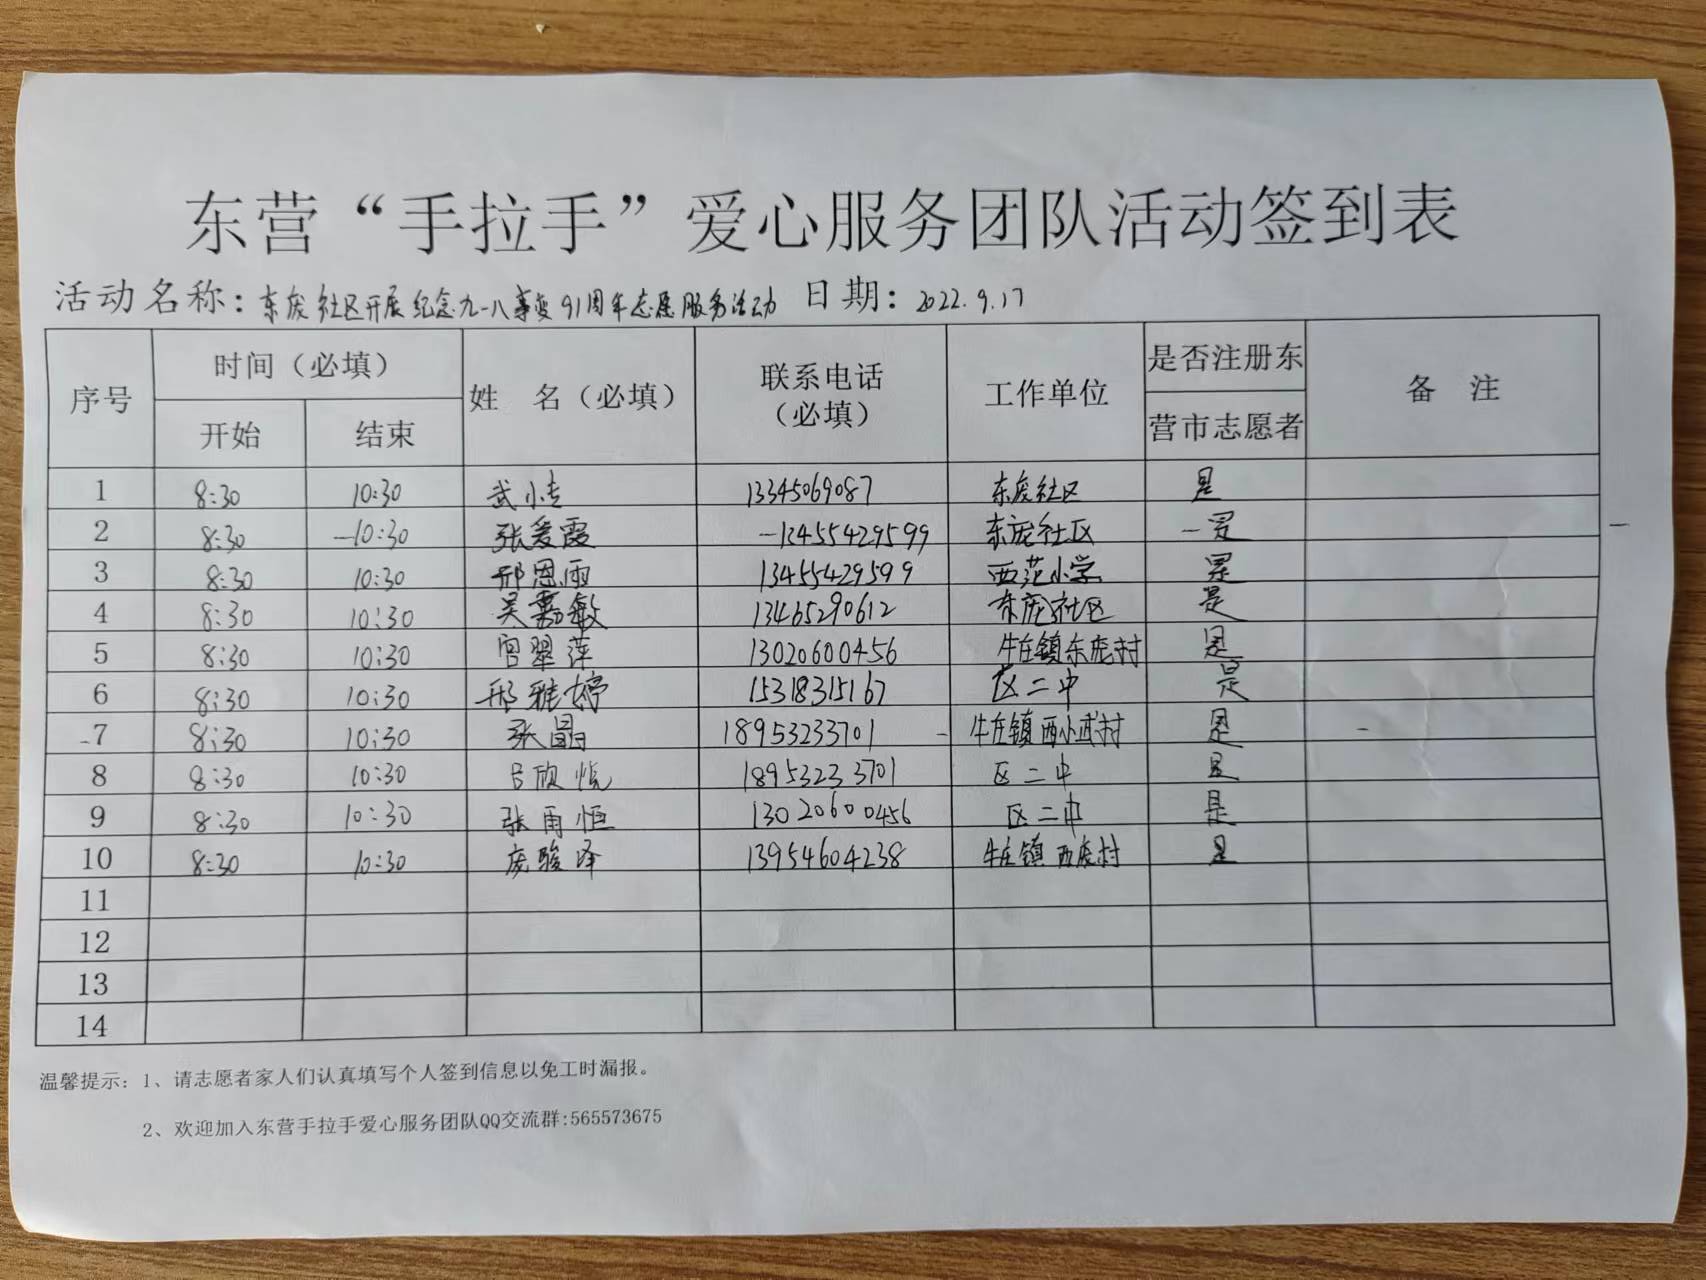 东营“手拉手”爱心服务团队活动签到表
活动名称：东庞社区开展纪念九一八事变91周年志愿服务活动 日期：2022.9.17
序号 时间（必填） 姓 名（必填） 联系电话（必填） 工作单位 是否注册东营市志愿者 备 注
开始 结束
1 8:30 10:30 武小 13345069087 东庞社区 是
2 8:30 10:30 张爱霞 13455429599 东庞社区 是
3 8:30 10:30 邢恩雨 13455429599 西范小学 是
4 8:30 10:30 吴嘉敏 13465290612 东庞社区 是
5 8:30 10:30 宫翠萍 13020600456 牛庄镇东庞村 是
6 8:30 10:30 邢雅婷 15318315167 区二中 是
7 8:30 10:30 张晶 18953233701 牛庄镇西小武村 是
8 8:30 10:30 吕欣悦 18953233701 区二中 是
9 8:30 10:30 张雨恒 13020600456 区二中 是
10 8:30 10:30 庞骏泽 13954604238 牛庄镇西庞村 是
11
12
13
14
温馨提示：1、请志愿者家人们认真填写个人签到信息以免工时漏报。
2、欢迎加入东营手拉手爱心服务团队QQ交流群:565573675